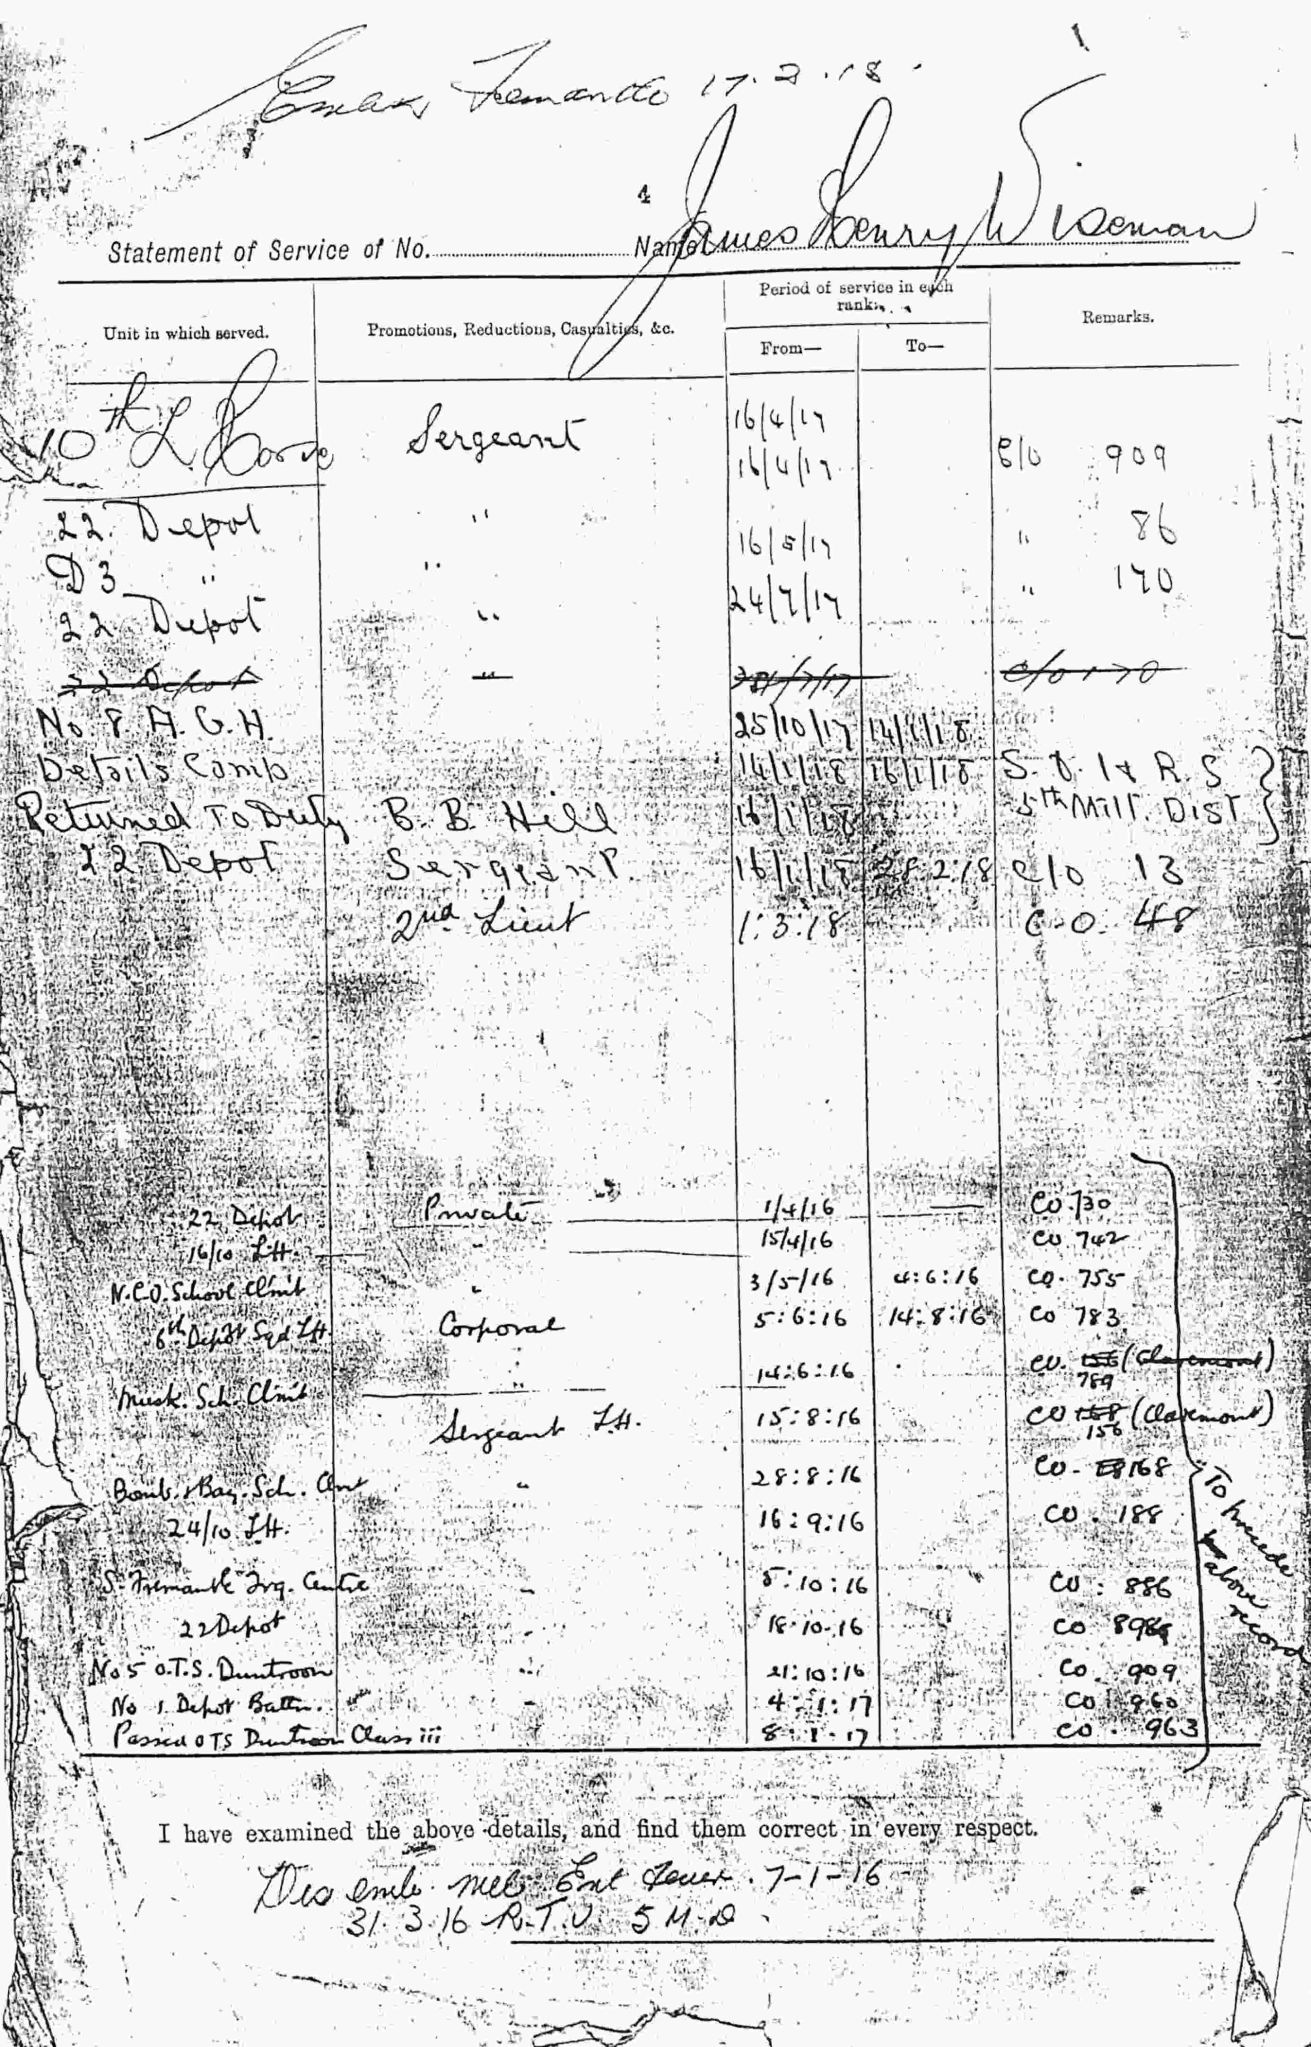 Fremantle 17.3.18.
4
Statement of Service of No. Name James Henry Wiseman
Unit in which served. Promotions, Reductions, Casualties, &c. Period of service in each rank. Remarks.
From— To—
10th L. Horse Sergeant 16/4/17
16/4/17 C/o 909
22 Depot " 16/5/17 " 86
D3 " " 24/7/17 " 170
22 Depot "
22 Depot " c/o 170
No. 8 A. G. H. 25/10/17 14/1/18
Details Camp 14/1/18 16/1/18 S. O. I & R. S
Returned To Duty B. B. Hill 16/1/18 5th Milt. Dist
22 Depot Sergeant. 16/1/18 28:2:18 C/o 13
2nd Lieut 1:3:18 C.O. 48
22 Depot Private 1/4/16 CO 730
16/10 L.H. " 15/4/16 CO 742
N.C.O. School Clmt " 3/5/16 4:6:16 CO. 755
6th Depot Sqd LH Corporal 5:6:16 14:8:16 CO 783
Musk. Sch. Clmt " 14:6:16 CO. 156 (Claremont)
789
Sergeant L.H. 15:8:16 CO 168 (Claremont)
156
Bomb. & Bay. Sch. Clmt " 28:8:16 CO. 168
24/10 L.H. 16:9:16 CO. 188
S. Fremantle Trg. Centre " 5:10:16 CO: 886
22 Depot " 18.10.16 CO
No 5 O.T.S. Duntroon " 21:10:16 Co. 909
No 1 Depot Battn. " 4:1:17 CO 960
Passed OTS Duntroon Class iii 8.1.17 CO. 963
To precede above record
I have examined the above details, and find them correct in every respect.
Dis emb. Melb Ent fever. 7-1-16
31.3.16 R.T.U. 5 M.D.